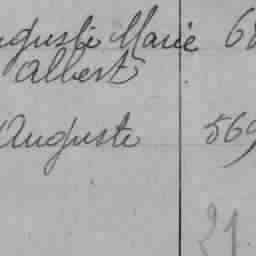 Auguste Marie 68
Albert
Auguste 569
21